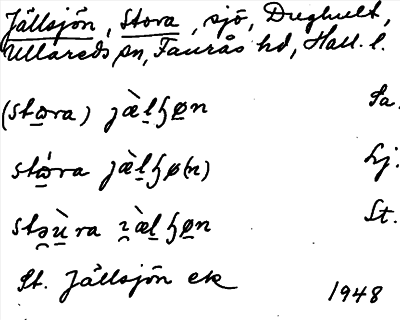 Jällsjön, Stora, sjö, Dughult,
Ullareds sn, Faurås hd, Hall. l.
(stωra) jæ̀lʃøn Sa.
stώra jæ̀lʃø(n) Lj.
stəùra ɪæ̀lʃøn St.
St. Jällsjön ek
1948